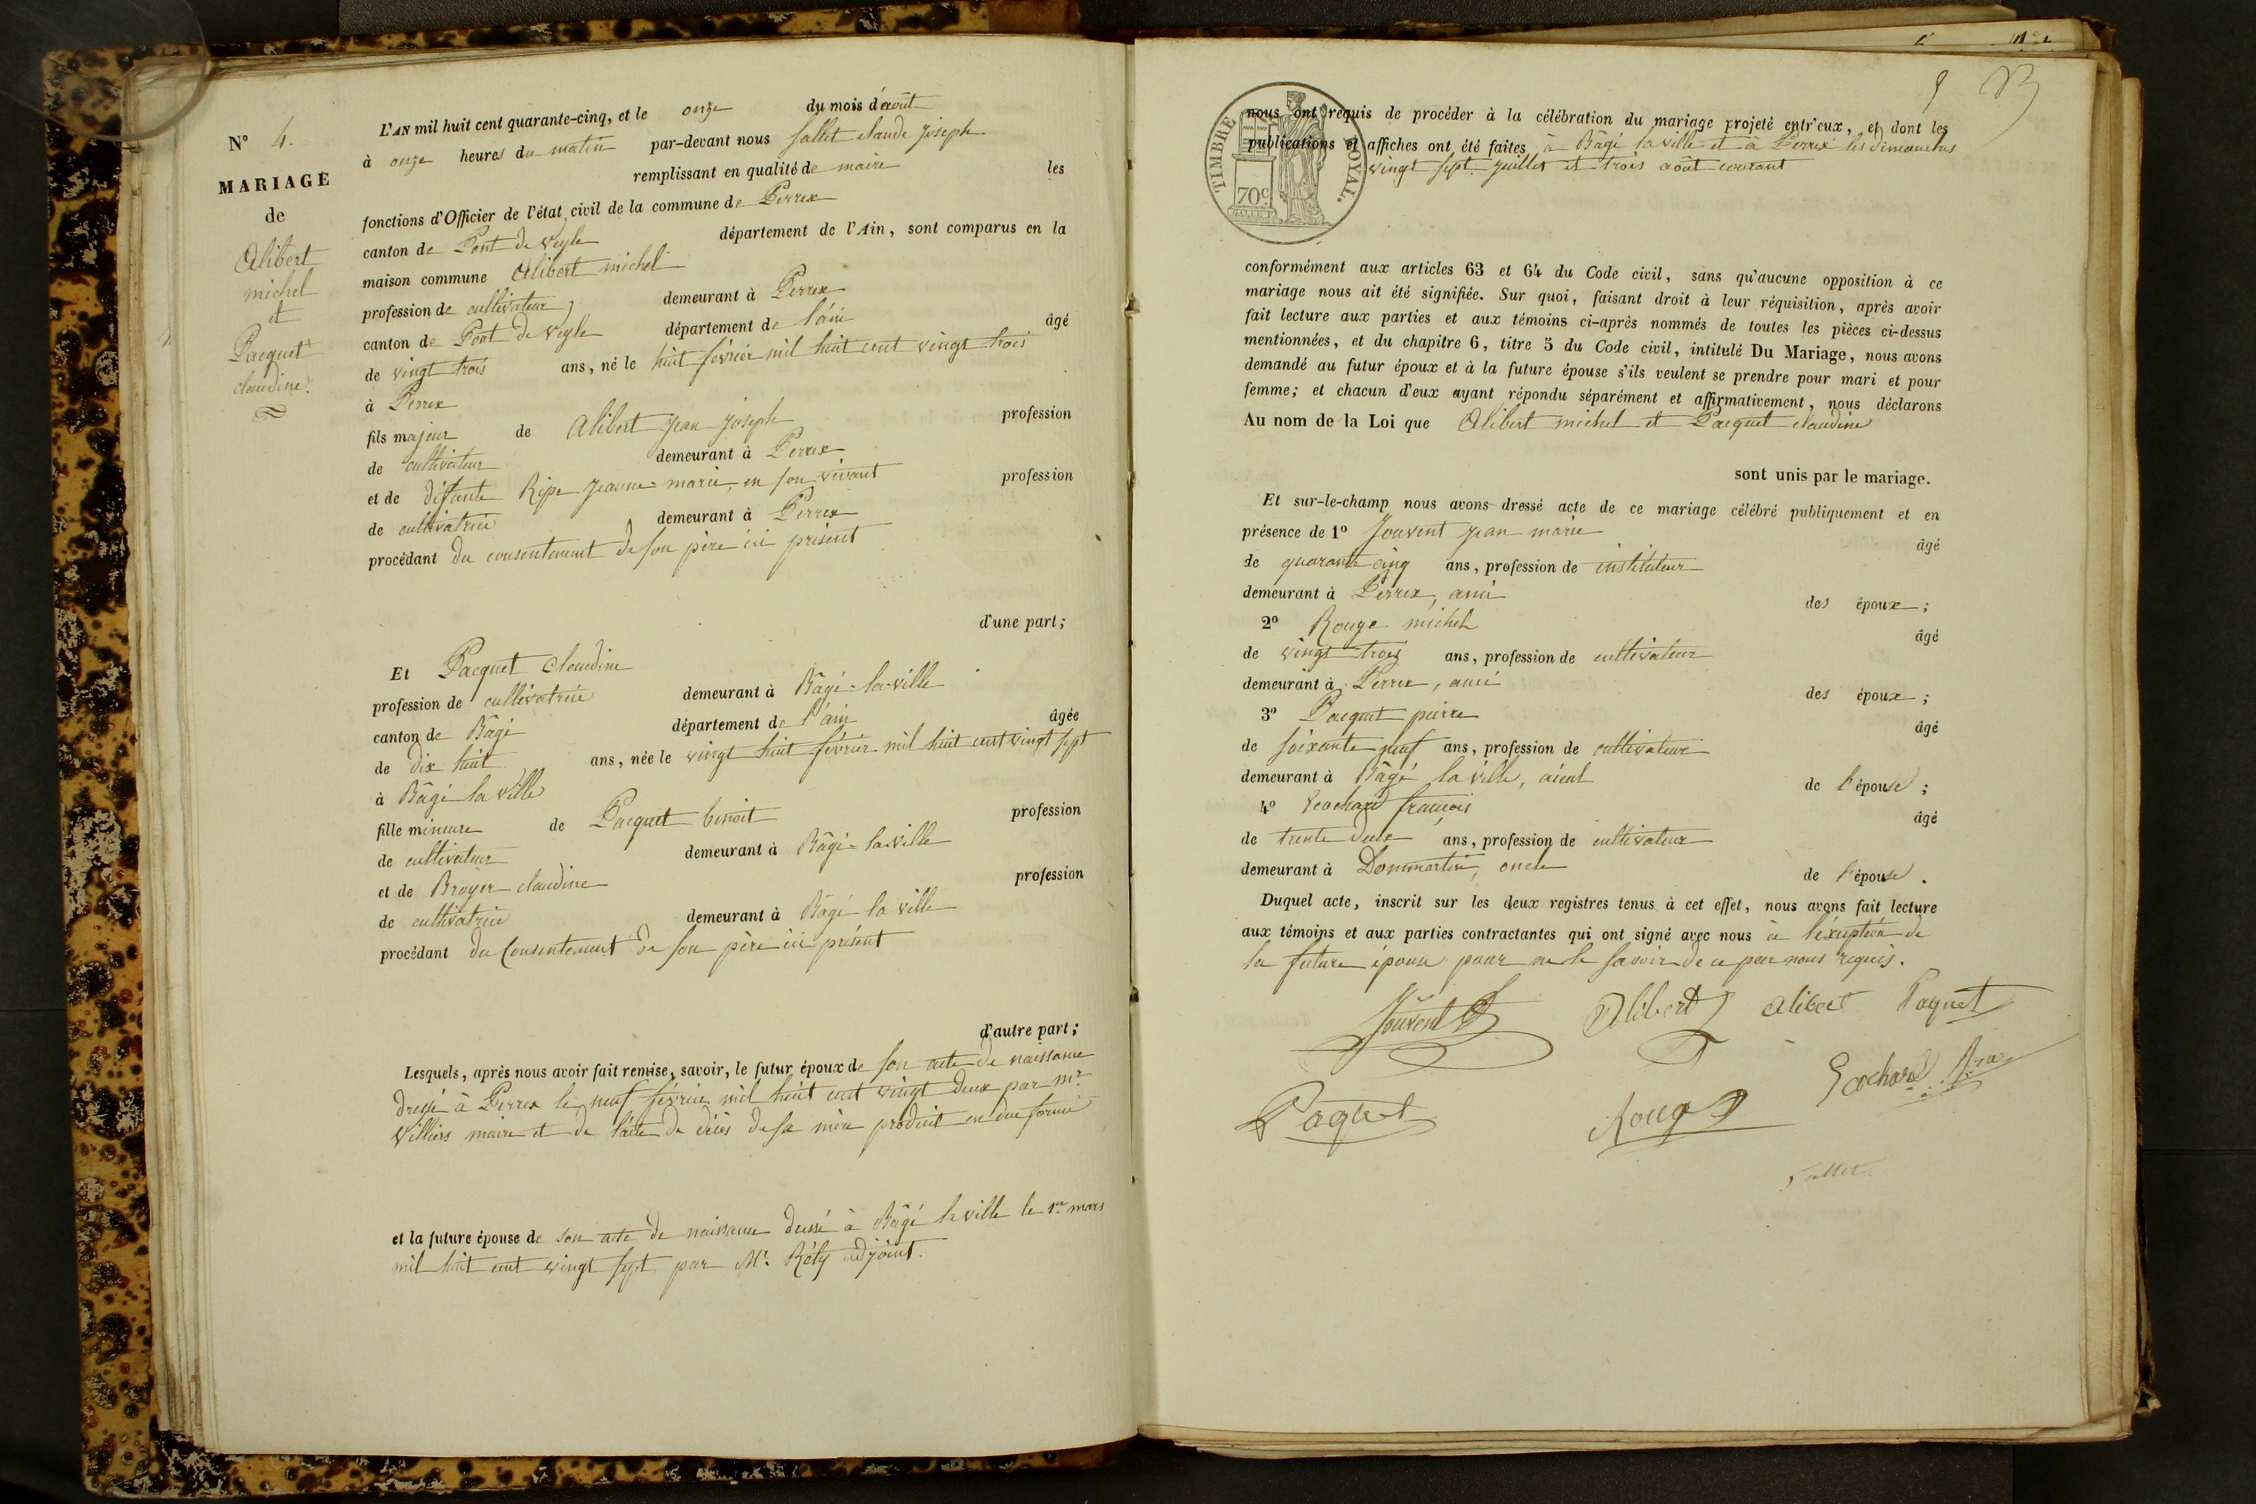 N° 4.
MARIAGE
de
Alibert
michel
et
Pacquet
claudine
L'AN mil huit cent quarante-cinq, et le onze du mois d'août
à onze heures du matin par-devant nous Sallet claude Joseph
remplissant en qualité de maire les
fonctions d'Officier de l'état civil de la commune de Perrex
canton de Pont de Veyle département de l'Ain, sont comparus en la
maison commune Alibert michel
profession de cultivateur demeurant à Perrex
canton de Pont de Veyle département de l'ain âgé
de vingt trois ans, né le huit février mil huit cent vingt trois
à Perrex
fils majeur de Alibert Jean Joseph profession
de cultivateur demeurant à Perrex
et de défunte Ripe Jeanne-marie, en son vivant profession
de cultivatrice demeurant à Perrex
procédant du consentement de son père ici présent
d'une part;
Et Pacquet claudine
profession de cultivatrice demeurant à Bâgé-la-ville
canton de Bâgé département de l'ain âgée
de dix huit ans, née le vingt huit février mil huit cent vingt sept
à Bâgé la ville
fille mineure de Pacquet benoit profession
de cultivateur demeurant à Bâgé-la-ville
et de Broyer claudine profession
de cultivatrice demeurant à Bâgé la ville
procédant du Consentement de son père ici présent
d'autre part;
Lesquels, après nous avoir fait remise, savoir, le futur époux de son acte de naissance
dressé à Perrex le neuf février mil huit cent vingt deux par mr
Villiers maire et de l'acte de décès de sa mère produit en due forme
et la future épouse de son acte de naissance dressé à Bâgé la ville le 1er mars
mil huit cent vingt sept par Mr. Réty adjoint.
5
TIMBRE ROYAL.
70c
nous ont requis de procéder à la célébration du mariage projeté entr'eux, et dont les
publications et affiches ont été faites à Bâgé la ville et à Perrex les dimanches
vingt sept juillet et trois août courant
conformément aux articles 63 et 64 du Code civil, sans qu'aucune opposition à ce
mariage nous ait été signifiée. Sur quoi, faisant droit à leur réquisition, après avoir
fait lecture aux parties et aux témoins ci-après nommés de toutes les pièces ci-dessus
mentionnées, et du chapitre 6, titre 5 du Code civil, intitulé Du Mariage, nous avons
demandé au futur époux et à la future épouse s'ils veulent se prendre pour mari et pour
femme; et chacun d'eux ayant répondu séparément et affirmativement, nous déclarons
Au nom de la Loi que Alibert michel et Pacquet claudine
sont unis par le mariage.
Et sur-le-champ nous avons dressé acte de ce mariage célébré publiquement et en
présence de 1° Jouvent Jean marie âgé
de quarante cinq ans, profession de instituteur
demeurant à Perrex, ami des époux;
2° Rouge michel âgé
de vingt trois ans, profession de cultivateur
demeurant à Perrex, ami des époux;
3° Pacquet pierre âgé
de soixante neuf ans, profession de cultivateur
demeurant à Bâgé la ville, aïeul de l'épouse;
4° Ecochard françois âgé
de trente deux ans, profession de cultivateur
demeurant à Dommartin, oncle de l'épouse.
Duquel acte, inscrit sur les deux registres tenus à cet effet, nous avons fait lecture
aux témoins et aux parties contractantes qui ont signé avec nous à l'exception de
la future épouse pour ne le savoir de ce par nous requis.
Jouvent Alibert alibert Paquet
Paquet Rouge Ecochard
Sallet